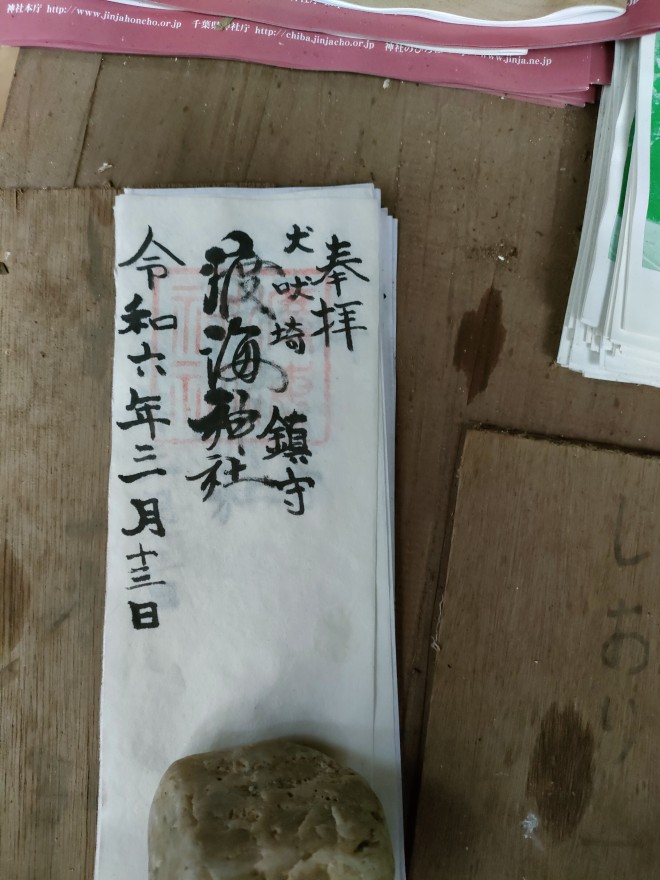 神社本庁 http://www.jinjahoncho.or.jp 千葉県神社庁 http://chiba.jinjacho.or.jp
奉拝
犬吠埼
鎮守
渡海神社
令和六年三月十三日
しおり